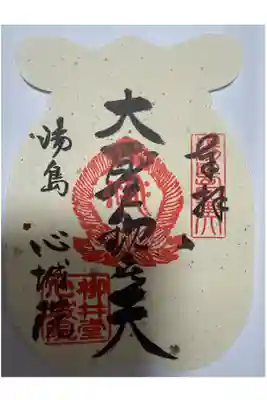 奉拝
大聖歓喜天
湯島
心城院
柳井堂